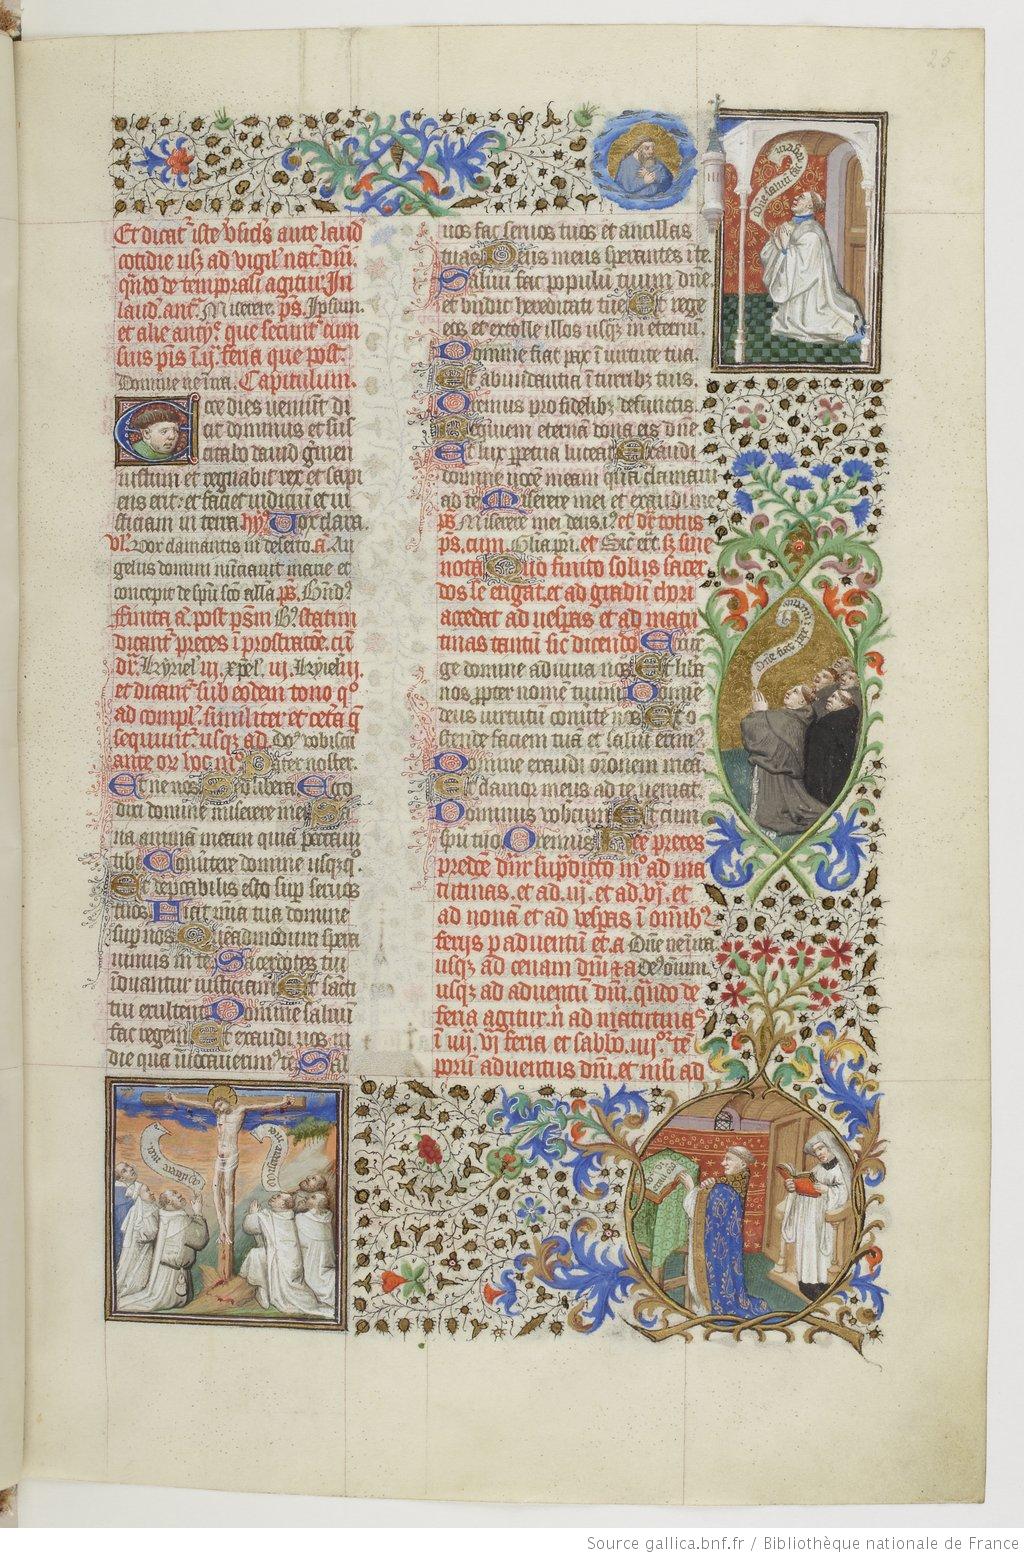 25
Et dicat̃ iste ṽsicl̃s ante laud̃
cotidie usq̃ ad vigil̃ nat̃ dñi
qñdo de temporali agitur. In
laud̃. ant̃. Miserere. ps̃. Ipsum.
et alie antiẽ que secunt̃ cum
suis ps̃is
feria que post.
Domine ne in ira. Capitulum.
Ecce dies veniunt di
cit dominus et sus
citabo david germen
iustum et regnabit rex et sapi
ens erit: et faciet iudicium et iu
sticiam in terra. hỹ. Vox clara.
Vox clamantis in deserto. añ. An
gelus domini nunciavit marie et
concepit de spũ sc̃o all̃a. ps̃.
finita añ. post psm̃ statim
dicant̃ preces ĩ prostratõe. cũ
Kyriel̃. iij. xpel̃. iij. Kyriel̃. iij
et dicant̃ sub eodem tono q̃
ad compl̃. similiter et cetera q̃
sequunt̃ usq̃ ad. Dñs vobiscũ
ante or̃ hoc mõ. Pater noster.
Et ne nos. Sed libera. Ego
dixi domine miserere mei. Sa
na animam meam quia peccavi
tibi. Convertere domine usq̃q̃.
Et deprecabilis esto sup̃ servos
tuos. Fiat mĩa tua domine
sup̃ nos. Quẽadmodum spera
vimus in te. Sacerdotes tui
induantur iusticiam. Et sancti
tui exultent. Domine salvũ
fac regem. Et exaudi nos in
die qua invocaverim̃ te. Sal
vos fac servos tuos et ancillas
tuas. Deus meus sperantes ĩ te.
Salvũ fac populũ tuum dñe.
et bñdic hereditati tue. Et rege
eos et extolle illos usq̃ in eternũ.
Domine fiat pax ĩ virtute tua.
Et abundantia ĩ turribꝫ tuis.
Oremus pro fidelibꝫ defunctis.
Requiem eternã dona eis dñe.
Et lux ppetua luceat. Exaudi
domine vocẽ meam qua clamavi
ad te. Miserere mei et exaudi me.
ps̃. Miserere mei deus. et dr̃ totus
ps̃. cum. Glĩa pr̃i. et. Sic̃ er̃at. sꝫ sine
nota. Quo finito solus sacer
dos se erigat. et ad gradũ chori
accedat ad vesp̃as et ad matu
tinas tantũ sic dicendo. Exur
ge domine adiuva nos. Et libera
nos ppter nomẽ tuum. Domine
deus virtutũ convẽte nos. Et o
stende faciem tuã et salvi erim̃.
Domine exaudi or̃onem meã.
Et clamor meus ad te veniat.
Dominus vobiscum. Et cum
spũ tuo. Oremus. Hee preces
predc̃e dñr supradicto mõ ad ma
tutinas. et ad. iij. et ad. vj. et
ad nonã et ad vesp̃as ĩ omnibꝫ
ferijs p adventum. et a. Dñe ne in ira
usq̃ ad cenam dñi. et a. Deus omĩum.
usq̃ ad adventũ dñi. qñdo de
feria agitur. ñ ad matutinas
ĩ iiij. vj feria et sabb̃o. iiij. te
porũ adventus dñi. et nisi ad
Source gallica.bnf.fr / Bibliothèque nationale de France